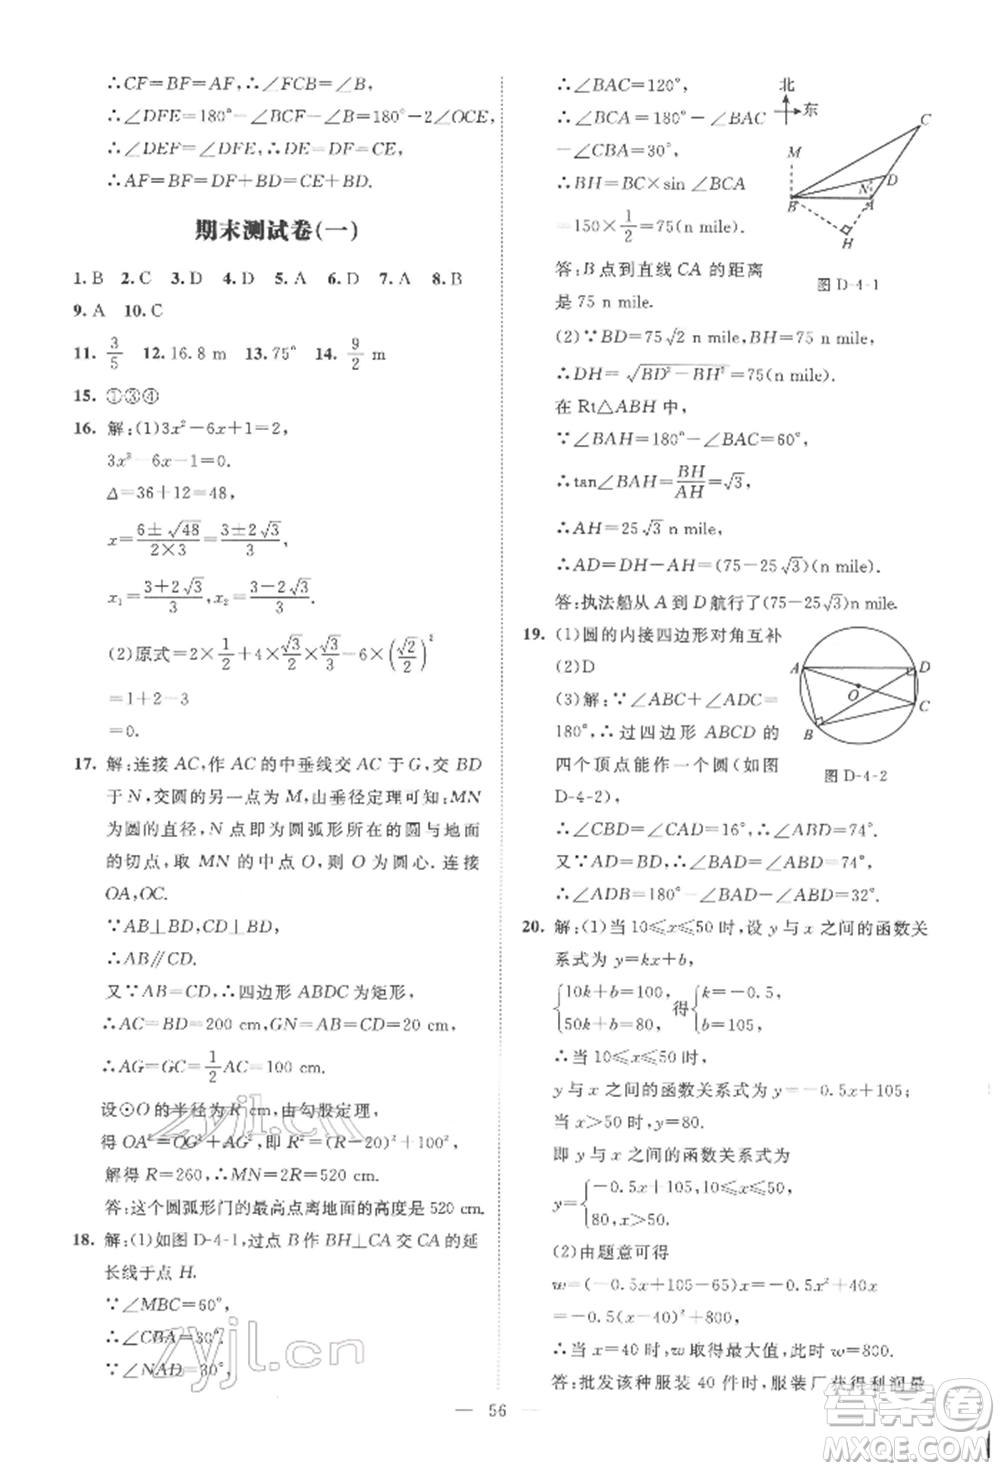 ∴CF=BF=AF,∴∠FCB=∠B,
∴∠DFE=180°-∠BCF-∠B=180°-2∠OCE,
∴∠DEF=∠DFE,∴DE=DF=CE,
∴AF=BF=DF+BD=CE+BD.
期末测试卷(一)
1.B 2.C 3.D 4.D 5.A 6.D 7.A 8.B
9.A 10.C
11. 3/5 12.16.8 m 13.75° 14. 9/2 m
15. ①③④
16. 解:(1)3x²-6x+1=2,
3x²-6x-1=0.
Δ=36+12=48,
x=(6±√48)/(2×3)=(3±2√3)/3,
x₁=(3+2√3)/3,x₂=(3-2√3)/3.
(2)原式=2×1/2+4×√3/3×√3/2-6×(√2/2)²
=1+2-3
=0.
17. 解:连接 AC,作 AC 的中垂线交 AC 于 G,交 BD
于 N,交圆的另一点为 M,由垂径定理可知:MN
为圆的直径,N 点即为圆弧形所在的圆与地面
的切点,取 MN 的中点 O,则 O 为圆心.连接
OA,OC.
∵AB⊥BD,CD⊥BD,
∴AB∥CD.
又∵AB=CD,∴四边形 ABDC 为矩形,
∴AC=BD=200 cm,GN=AB=CD=20 cm,
∴AG=GC=1/2 AC=100 cm.
设⊙O 的半径为 R cm,由勾股定理,
得 OA²=OG²+AG²,即 R²=(R-20)²+100²,
解得 R=260,∴MN=2R=520 cm.
答:这个圆弧形门的最高点离地面的高度是520 cm.
18. 解:(1)如图 D-4-1,过点 B 作 BH⊥CA 交 CA 的延
长线于点 H.
∵∠MBC=60°,
∴∠CBA=30°.
∵∠NAD=30°,
∴∠BAC=120°,
∴∠BCA=180°-∠BAC
-∠CBA=30°,
∴BH=BC×sin ∠BCA
=150×1/2=75(n mile).
答:B 点到直线 CA 的距离
是 75 n mile.
北
东
M
C
D
N
B
A
H
图 D-4-1
(2)∵BD=75√2 n mile,BH=75 n mile,
∴DH=√(BD²-BH²)=75(n mile).
在 Rt△ABH 中,
∵∠BAH=180°-∠BAC=60°,
∴tan∠BAH=BH/AH=√3,
∴AH=25√3 n mile,
∴AD=DH-AH=(75-25√3)(n mile).
答:执法船从 A 到 D 航行了(75-25√3)n mile.
19. (1)圆的内接四边形对角互补
(2)D
(3)解:∵∠ABC+∠ADC=
180°,∴过四边形 ABCD 的
四个顶点能作一个圆(如图
D-4-2),
A
D
O
C
B
图 D-4-2
∴∠CBD=∠CAD=16°,∴∠ABD=74°.
又∵∠BAD=∠ABD=74°,
∴∠ADB=180°-∠BAD-∠ABD=32°.
20. 解:(1)当 10≤x≤50 时,设 y 与 x 之间的函数关
系式为 y=kx+b,
{10k+b=100, 得 {k=-0.5,
50k+b=80, b=105,
∴当 10≤x≤50 时,
y 与 x 之间的函数关系式为 y=-0.5x+105;
当 x>50 时,y=80.
即 y 与 x 之间的函数关系式为
y={-0.5x+105,10≤x≤50,
80,x>50.
(2)由题意可得
w=(-0.5x+105-65)x=-0.5x²+40x
=-0.5(x-40)²+800,
∴当 x=40 时,w 取得最大值,此时 w=800.
答:批发该种服装 40 件时,服装厂获得利润最
56
zyjl.cn
zyjl.cn
答案圈
MXQE.COM